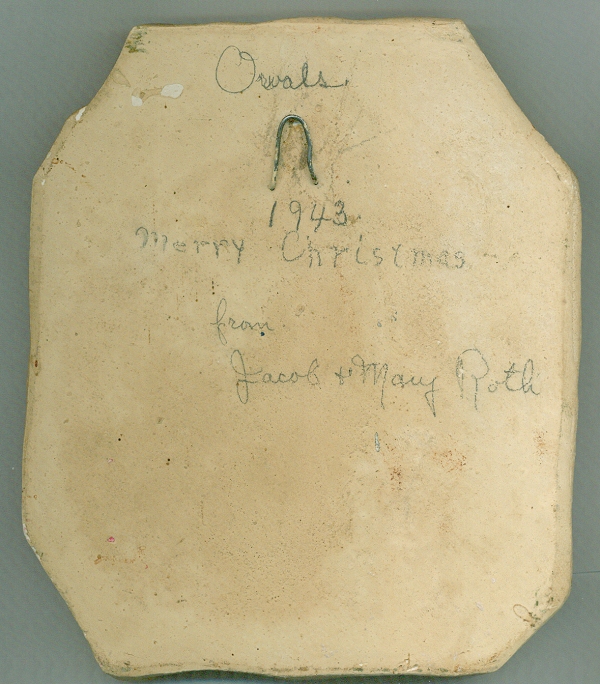 Orvals.
1943
Merry Christmas
from
Jacob & Mary Roth